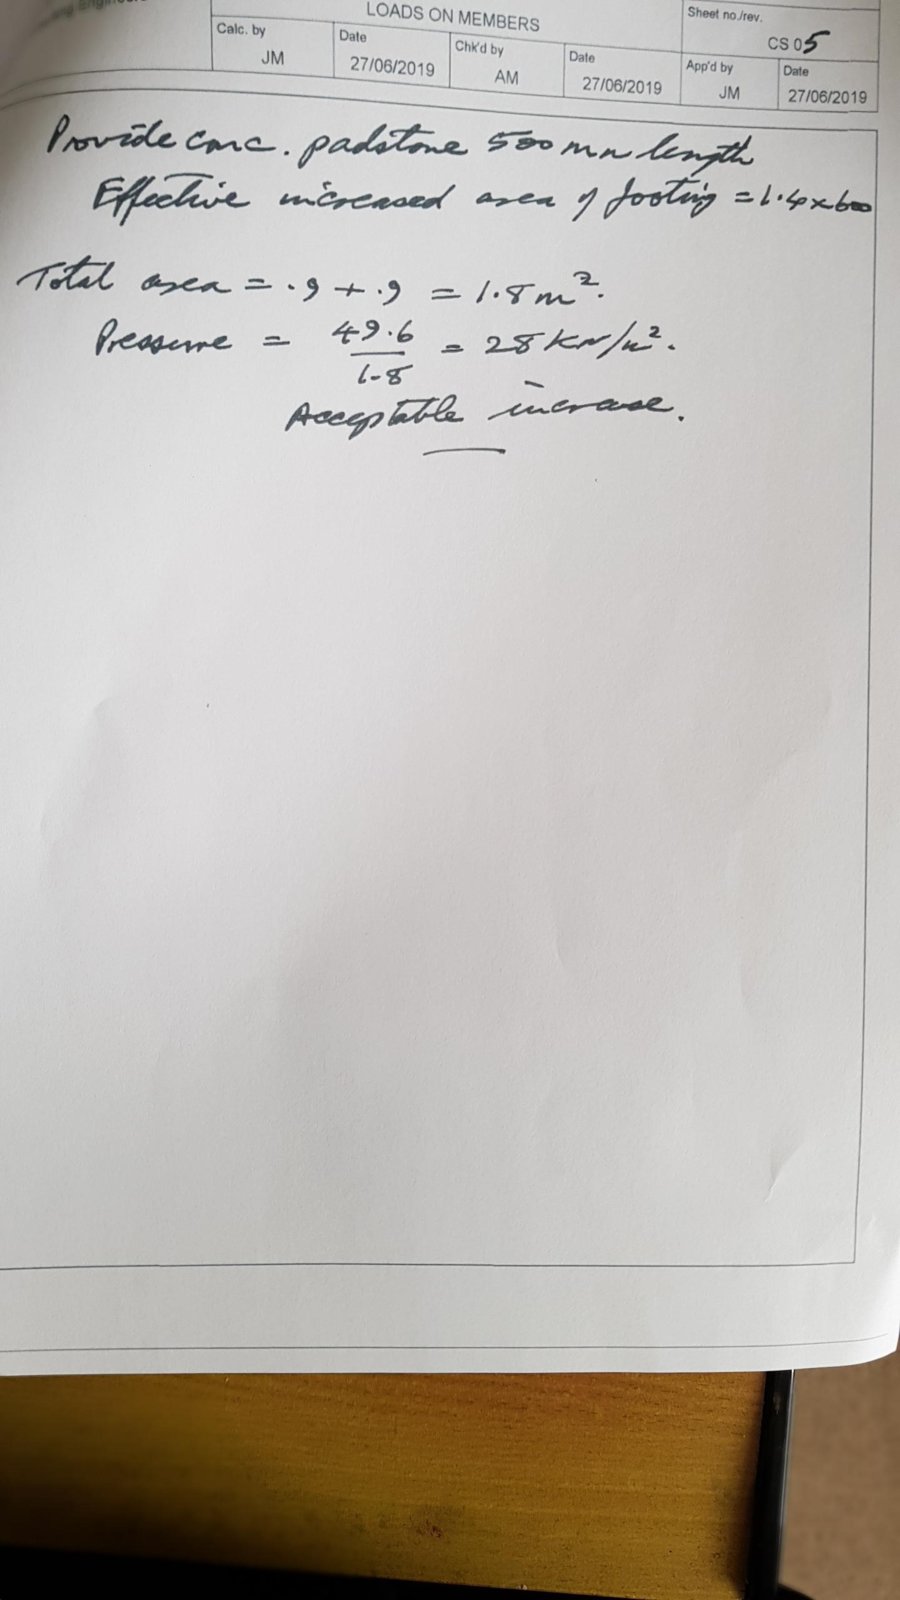 LOADS ON MEMBERS
Sheet no./rev.
CS 05
Calc. by
JM
Date
27/06/2019
Chk'd by
AM
Date
27/06/2019
App'd by
JM
Date
27/06/2019
Provide conc. padstone 500 mm length
Effective increased area of footing = 1.4 x 600
Total area = .9 + .9 = 1.8 m².
Pressure = 49.6 / 1.8 = 28 KN/m².
Acceptable increase.